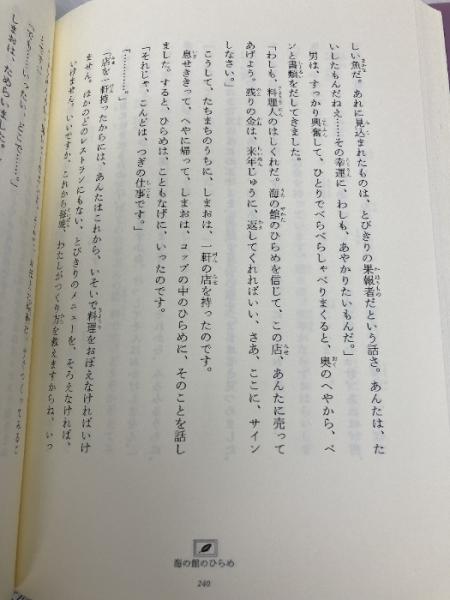 しい魚だ。あれに見込まれたものは、とびきりの果報者だという話さ。あんたは、た
いしたもんだねえ……その幸運に、わしも、あやかりたいもんだ。」
男は、すっかり興奮して、ひとりでべらべらしゃべりまくると、奥のへやから、ペ
ンと書類をだしてきました。
「わしも、料理人のはしくれだ。海の館のひらめを信じて、この店、あんたに売って
あげよう。残りの金は、来年じゅうに、返してくれればいい、さあ、ここに、サイン
しなさい。」
こうして、たちまちのうちに、しまおは、一軒の店を持ったのです。
息せききって、へやに帰って、しまおは、コップの中のひらめに、そのことを話し
ました。すると、ひらめは、こともなげに、いったのです。
「それじゃ、こんどは、つぎの仕事です。」
「…………。」
「店を一軒持ったからには、あんたはこれから、いそいで料理をおぼえなければいけ
ません。ほかのどのレストランにもない、とびきりのメニューを、そろえなければ、
いけません。いいですか、これから毎晩、わたしがつくり方を教えますからね、いっ
しまおは、ためらいました。
海の館のひらめ
240